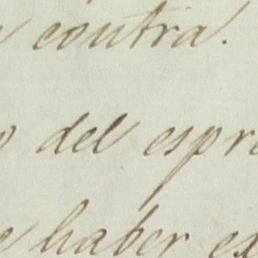 contra.
del espre
haber ex